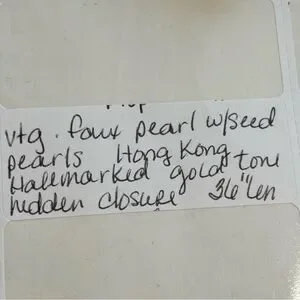 vtg. faux pearl w/seed
pearls Hong Kong
Hallmarked gold tone
hidden closure 36" len